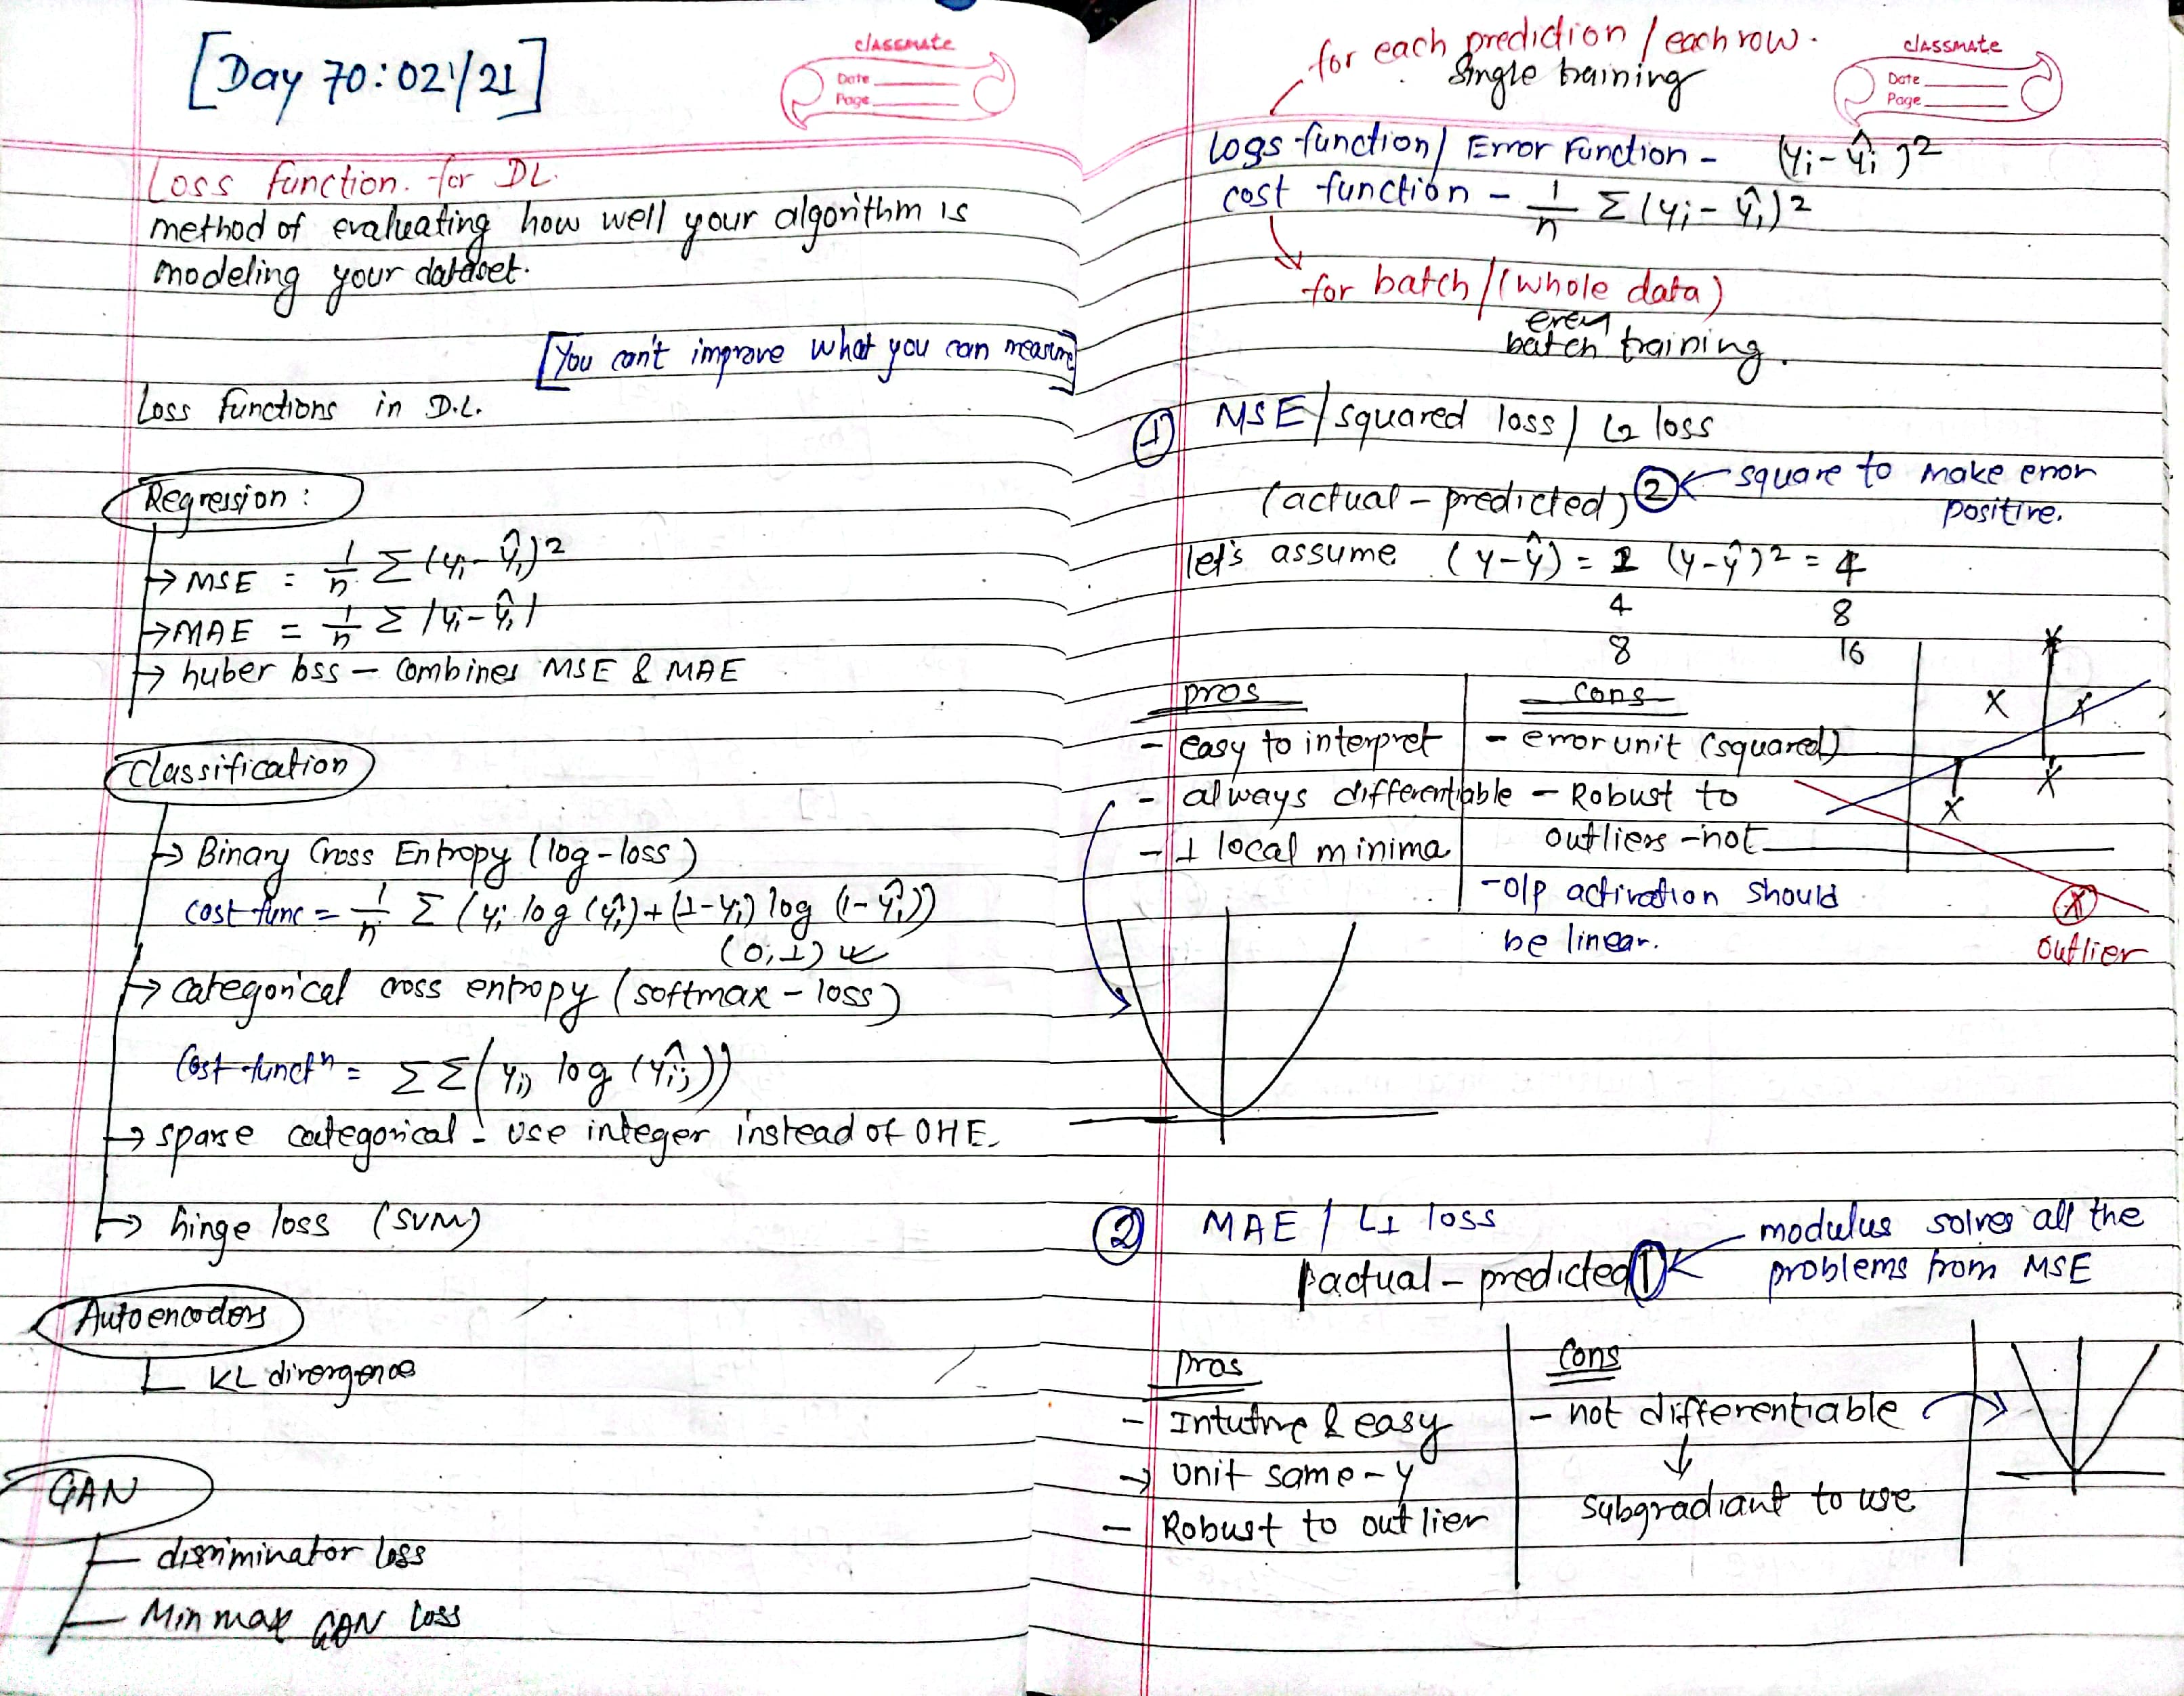 [Day 70:02/21]
classmate
Date
Page
Loss function. for DL.
method of evaluating how well your algorithm is
modeling your dataset.
[You can't improve what you can measure]
Loss functions in D.L.
Regression :
→ MSE = 1/n Σ (yi - ŷi)²
→ MAE = 1/n Σ |yi - ŷi|
→ huber loss – combines MSE & MAE
Classification
→ Binary Cross Entropy (log-loss)
cost func = 1/n Σ (yi log (ŷi) + (1-yi) log (1-ŷi))
(0,1)
→ categorical cross entropy (softmax – loss)
Cost functⁿ = ΣΣ(yij log (ŷij))
→ sparse categorical - use integer instead of OHE.
→ hinge loss (SVM)
Autoencoders
KL divergence
GAN
discriminator loss
Min max GAN loss
for each prediction / each row.
Single training
classmate
Date
Page
Logs function / Error Function - (yi - ŷi)²
cost function - 1/n Σ (yi - ŷi)²
for batch / (whole data)
every
batch training.
① MSE / squared loss / L2 loss
(actual – predicted)② ← square to make error
positive.
let's assume (y-ŷ) = 2 (y-ŷ)² = 4
4 8
8 16
pros cons
- easy to interpret - error unit (squared)
- always differentiable - Robust to
- 1 local minima outliers - not
- O/P activation should
be linear.
outlier
② MAE / L1 loss
modulus solves all the
|actual – predicted| ← problems from MSE
pros Cons
- Intutive & easy - not differentiable
→ Unit same - y
subgradiant to use
- Robust to outlier